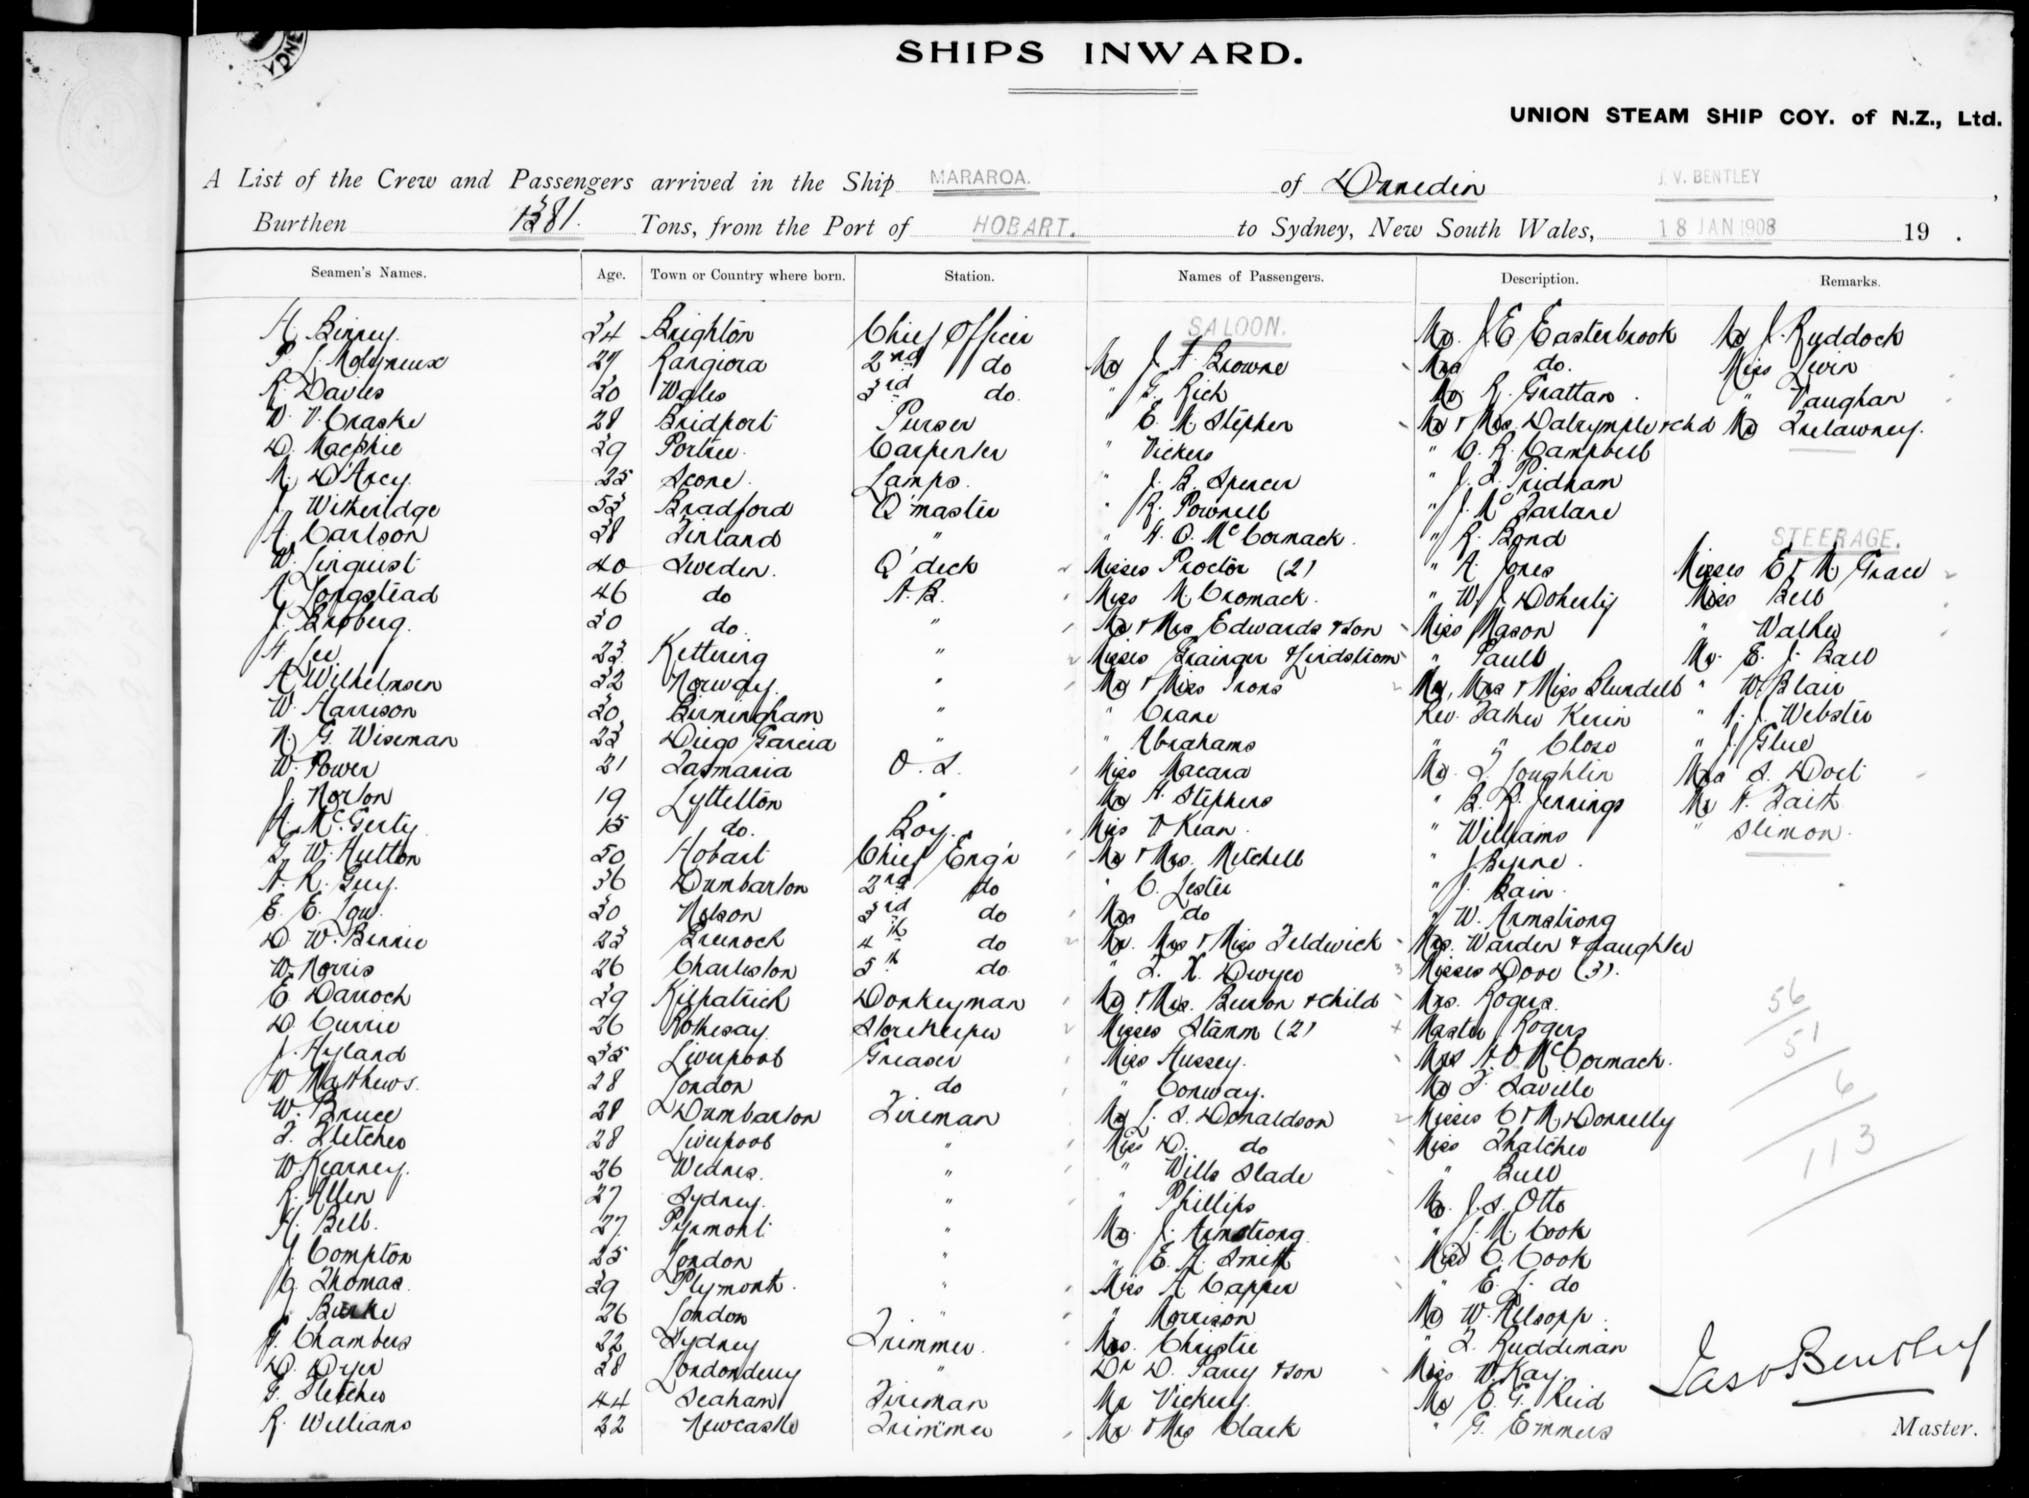 SHIPS INWARD.
UNION STEAM SHIP COY. of N.Z., Ltd.
A List of the Crew and Passengers arrived in the Ship MARAROA. of Dunedin J. V. BENTLEY
Burthen 1381. Tons, from the Port of HOBART. to Sydney, New South Wales, 18 JAN 1908 19 .
Seamen's Names. Age. Town or Country where born. Station. Names of Passengers. Description. Remarks.
H. Binney. 34 Brighton Chief Officer
P. J. Molyneux 27 Rangiora 2nd do
R. Davies 30 Wales 3rd do.
W. V. Craske 28 Bridport Purser
D. Macphie 39 Portree Carpenter
M. D'Arcy. 25 Scone. Lamps.
J. Witheridge 53 Bradford Q'master
A. Carlson 38 Finland "
W. Linquist 40 Sweden. Q'deck
A. Longstead 46 do A.B.
J. Broberg. 30 do. "
H. Lee 23 Kettering "
A. Wilhelmsen 32 Norway. "
W. Harrison 30 Birmingham "
N. G. Wiseman 23 Diego Garcia "
W. Power 21 Tasmania O.S.
J. Norton 19 Lyttelton "
H. McGerty 15 do. Boy.
G. W. Hutton 50 Hobart Chief Eng'r
A. R. Guy. 36 Dumbarton 2nd do
E. E. Low. 30 Nelson 3rd do
D. W. Binnie 23 Greenock 4th do
W. Norris 26 Charleston 5th do
E. Darroch 39 Kilpatrick Donkeyman
D. Currie 26 Rothesay. Storekeeper
J. Hyland 35 Liverpool Greaser
W. Mathews. 28 London do
W. Bruce 28 Dumbarton Fireman
F. Fletcher 28 Liverpool "
W. Kearney. 26 Widnes. "
R. Allen 27 Sydney. "
H. Bell. 27 Pyrmont "
J. Compton 25 London "
G. Thomas. 39 Plymouth. "
Burke 26 London "
F. Chambers 22 Sydney Trimmer
D. Dyer 38 Londonderry "
G. Fletcher 44 Seaham Fireman
R. Williams 22 Newcastle Trimmer
SALOON.
Mr J. A. Browne
" G. Rich
" E. M. Stephen
" Vickers
" J. B. Spencer
" R. Pownell
" A. O. McCormack.
Misses Proctor (2)
Miss M. Cromack.
Mr & Mrs Edwards & Son
Misses Grainger & Lindstrom
Mr & Miss Irons
" Crane
" Abrahams
Miss Macara
Mr A. Stephens
Miss O'Kean.
Mr & Mrs. Mitchell
" C. Lester
Mrs do
Mr. Mrs & Miss Feldwick
" T. X. Dwyer
Mr & Mrs. Burton & Child
Misses Stamm (2)
Miss Hussey.
" Conway.
Mr J. S. Donaldson
Miss D. do
" Wills Slade
" Phillips
Mr. J. Armstrong
" E. A. Smith
Miss A. Capper
" Morrison
Mrs. Christie
Dr D. Parry & Son
Mr Vickery.
Mr & Mrs Clark
Mr. J. E. Easterbrook
Mrs do.
Mr R. Grattan.
Mr & Mrs Dalrymple & Chd
" C. R. Campbell
" J. F. Pridham
" J. McFarlane
" R. Bond
" A. Jones
" W. J. Doherty
Miss Mason
" Paull
Mr, Mrs & Miss Blundell
Rev. Father Kerin
" " Close
Mr. F. Loughlin
" B. R. Jennings
" Williams
" J. Byrne.
" J. Bain.
" W. Armstrong
Mrs. Warden & daughter
Misses Dove (3).
Mrs. Rogers.
Master Rogers
Mrs A. O. McCormack.
Mr F. Saville
Misses C & M. Donnelly
Miss Thatcher
" Bull
Mr. J. S. Otto
" J. M. Cook
Miss C. Cook
" E. L. do
Mr W. Allsopp.
" F. Ruddiman
Miss W. Kay.
Mr E. G. Reid
" G. Emmers
Mr J. Ruddock
Miss Levin
" Vaughan
Mr Trelawney.
STEERAGE.
Misses E & M. Grace
Miss Bell
" Walker
Mr. E. J. Ball
" W. Blair
" J. J. Webster
" J. Glue
Mrs S. Dort
Mr A. Faith
" Slimon.
56
51
6
113
Jas V Bentley
Master.